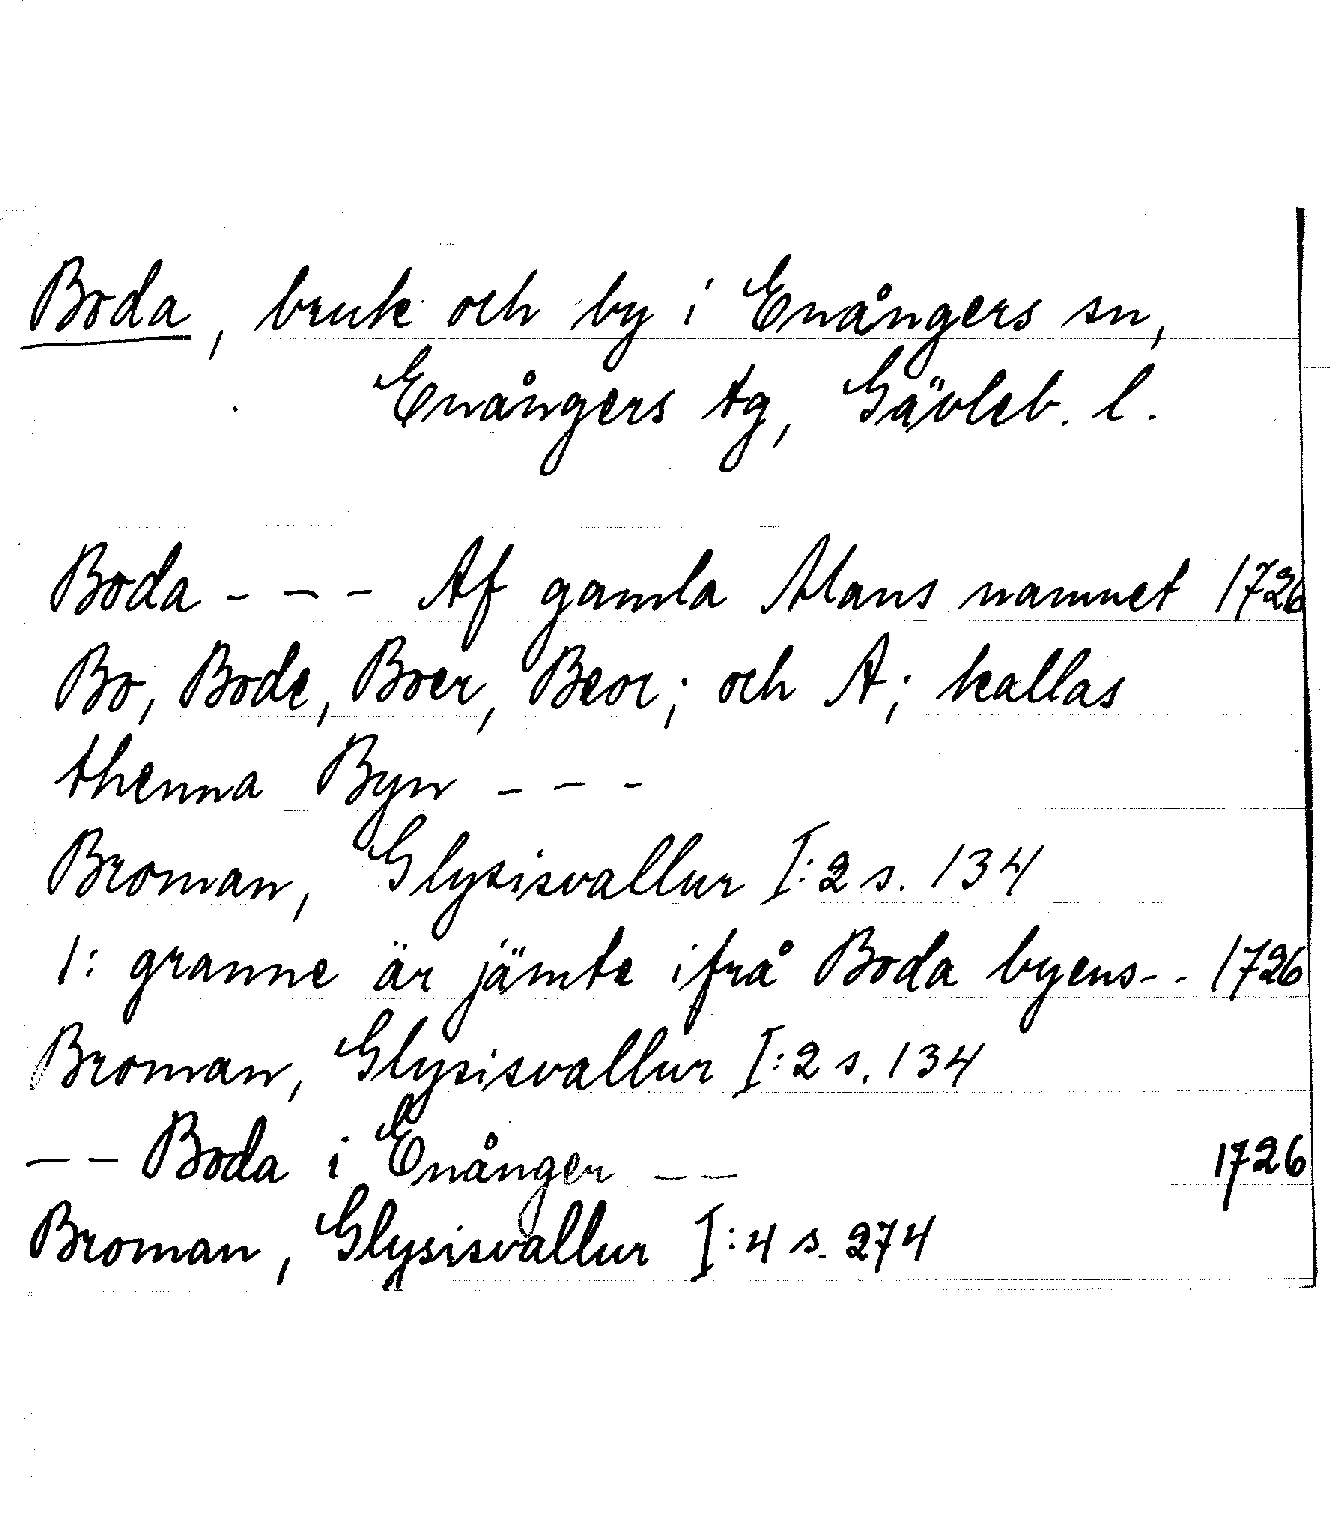 Boda, bruk och by i Enångers sn,
Enångers tg, Gävleb. l.
Boda - - - Af gamla Mans namnet 1726
Bo, Bode, Boer, Beor; och A; kallas
thenna Byn - - -
Broman, Glysisvallur I:2 s. 134
1: granne är jämte ifrå Boda byens - - 1726
Broman, Glysisvallur I:2 s. 134
- - Boda i Enånger - - 1726
Broman, Glysisvallur I:4 s. 274